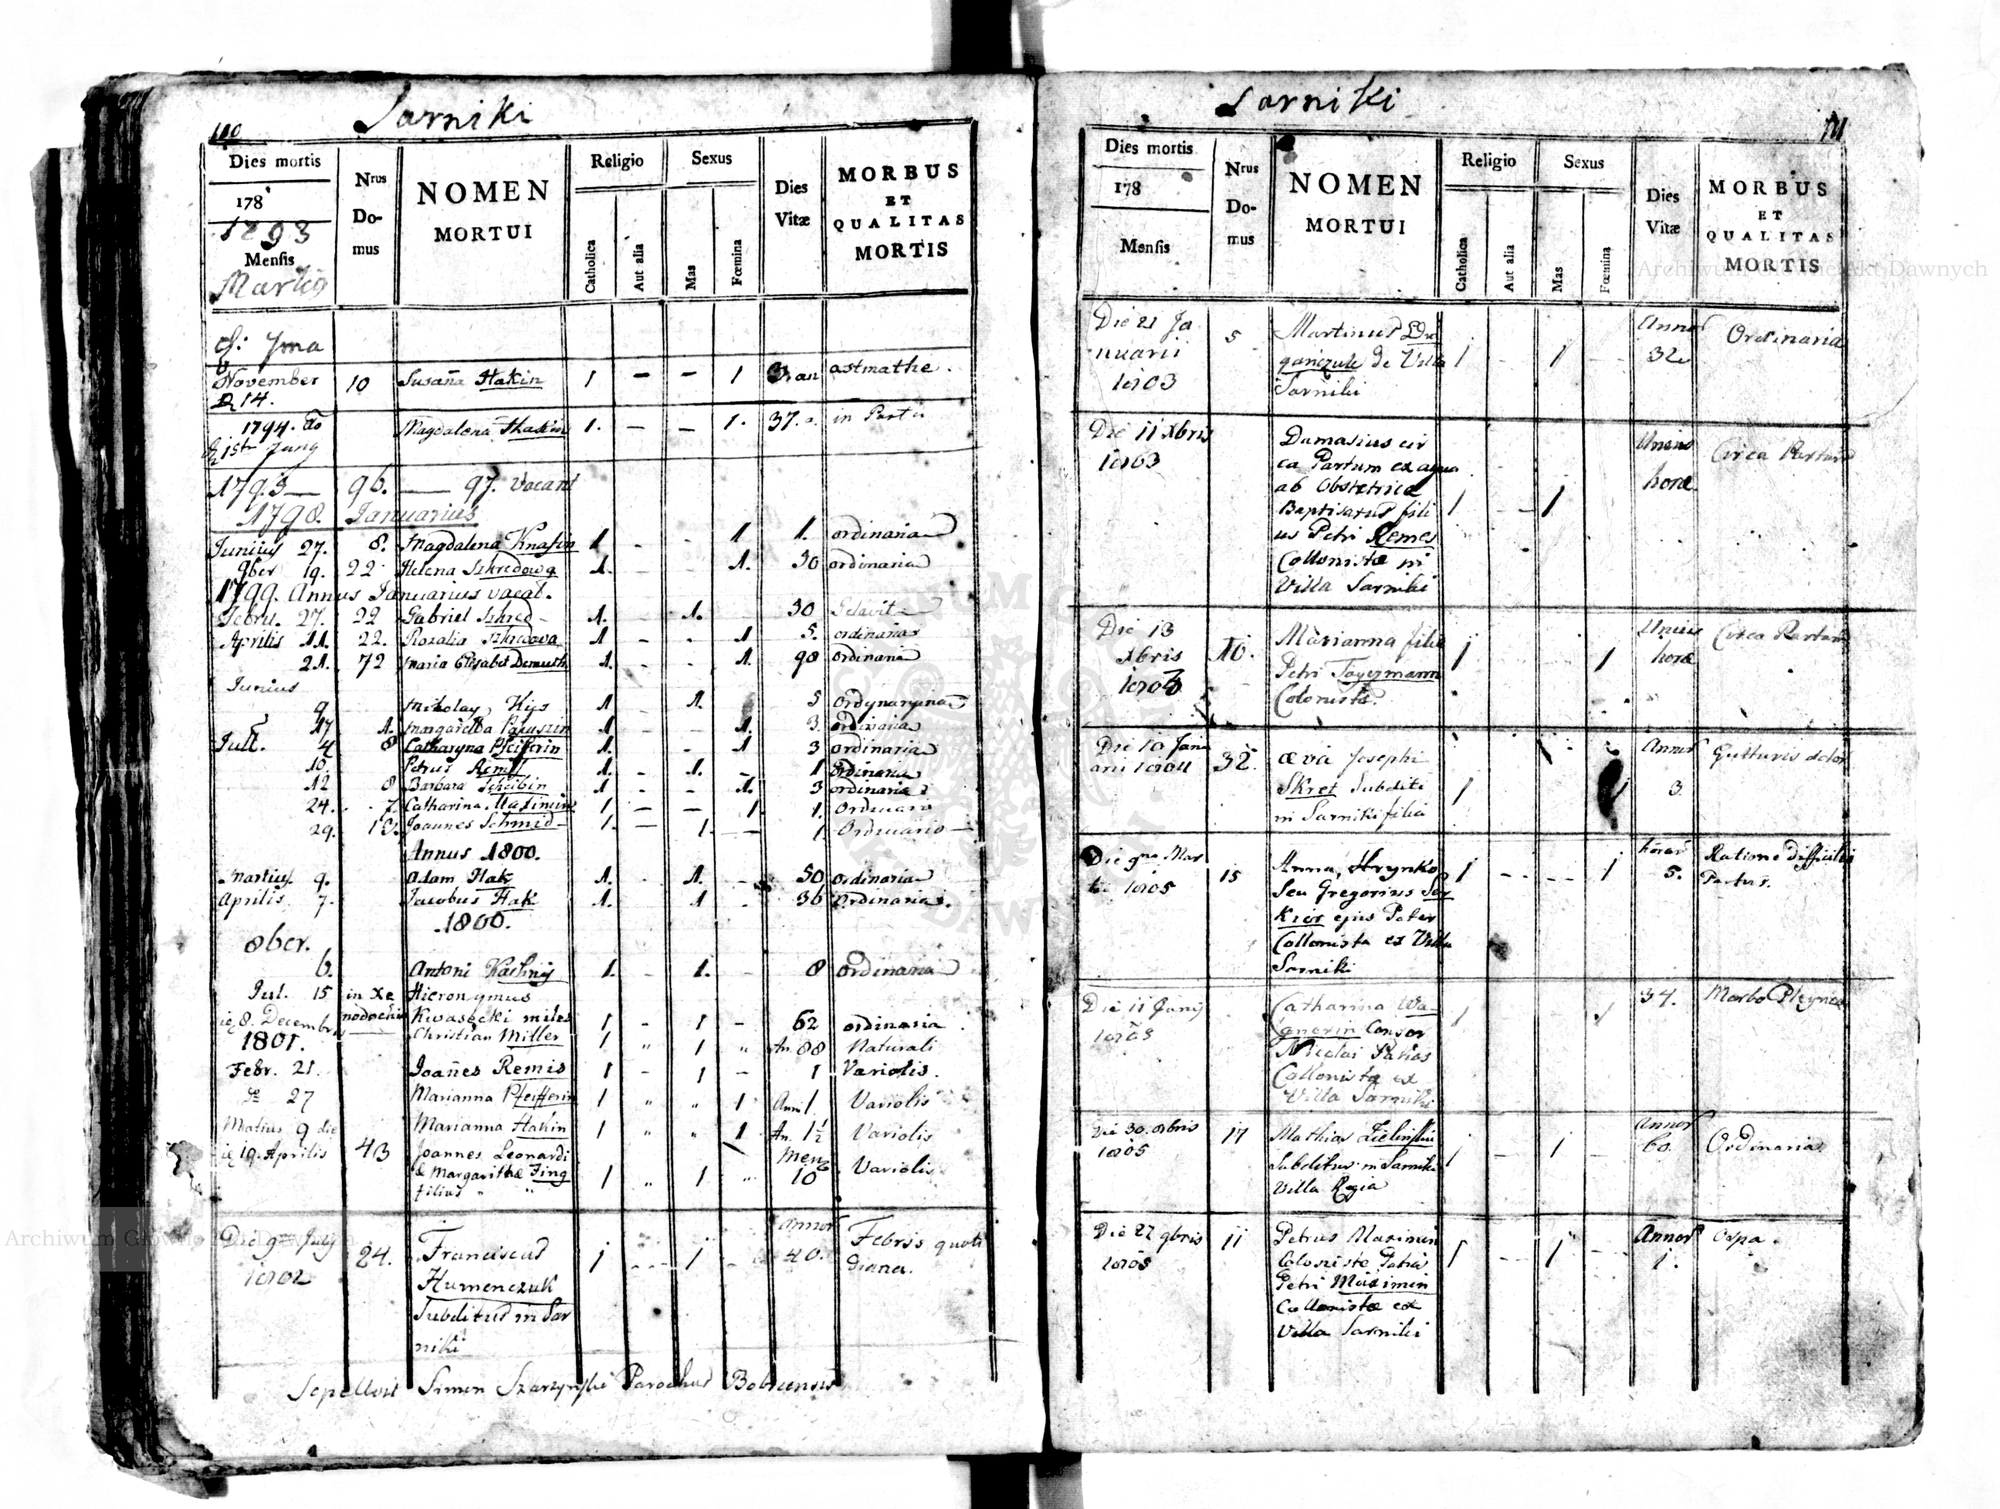 110
Sarniki
Dies mortis
178
1793
Mensis
Nrus
Do-
mus
NOMEN
MORTUI
Religio
Catholica
Aut alia
Sexus
Mas
Fœmina
Dies
Vitæ
MORBUS
ET
QUALITAS
MORTIS
November 10 Susaña Hakin 1 — — 1 astmathe.
14.
1794. Magdalena Hakin 1. — — 1. 37. in Partu
1795 — 96. — 97. vacant
1798. Januarius
Junius 27. 8. Magdalena Knafin 1 - - 1 1. ordinaria
9ber 19. 22 Helena Szkredowa 1. - - 1. 30 ordinaria
1799. Annus Januarius vacat.
Febru. 27. 22 Gabriel Szkred 1. - 1. 30
Aprilis 11. 22. Rozalia Szkredova 1 - - 1 5. ordinaria
21. 72 Maria Elisabet Demuth 1. - - 1. 90 ordinaria
Junius
9 Mikolay Kys 1 - 1. 5 ordynaryina
17 1. Margaretha 1 - - 1. 3. ordinaria
Jull. 4 8 Catharyna Pfeifferin 1. - - 1 3 ordinaria
10. Petrus Remi 1. - 1. - 1 ordinaria
12 8 Barbara Scheibin 1 - - 1. 3 ordinaria
24. 7 Catharina Maximin 1 — — 1 1. ordinario
29. 10. Joannes Schmid 1. — 1. — 1 Ordinario
Annus 1800.
Martius 9. Adam Hak 1. - 1. - 50 ordinaria
Aprilis 7. Jacobus Hak 1. - 1 - 36 ordinaria.
1800.
8ber.
6. Antoni 1. - 1. - 8 ordinaria
Jul. 15 in Xe Hieronymus
Kwasecki miles 1 - 1 - 62 ordinaria
8. Decembris Christian Miller 1 " 1 " An. 88 Naturali
1801.
Febr. 21. Joañes Remis 1 - 1 - 1 Variolis.
27 Marianna Pfeifferin 1 " " 1 Ann. 1 Variolis
Matius 9 die Marianna Hakin 1 " " 1 An. 1½ Variolis
19. Aprilis 43 Joannes Leonardi
& Margarithæ Jing 1 " 1 " 10 Variolis
filius " "
24. Franciscus 1 1 Annor 40. Febris quoti
1802 Humenczuk diana.
Subditus in Sar
niki
Sepelivit Simon Parochus
111
Sarniki
Dies mortis
178
Mensis
Nrus
Do-
mus
NOMEN
MORTUI
Religio
Catholica
Aut alia
Sexus
Mas
Fœmina
Dies
Vitæ
MORBUS
ET
QUALITAS
MORTIS
Die 21 Ja 5 Martinus Annor Ordinaria
nuarii de Villa 1 - 1 - 32
1803 Sarniki
Die 11 Xbris Damasius cir Unius Circa Partum
1803 ca Partum ex aqua horæ
ab Obstetrice
Baptisatus fili 1 - 1
us Petri Remes
Collonistæ in
Villa Sarniki
Die 13 Marianna filia Unius Circa Partum
Xbris 10. Petri 1 1 horæ
1803 Colonista.
Die 10 Janu æva Josephi Annor Gutturis dolor
arii 1804 32. Skret Subditi 1 1 3
in Sarniki filia
Die 9na Mar Anna, Hrynko 1 - - 1 horar Ratione difficilis
tii 1805 15 Seu Gregorius 5. Partus.
ejus Pater
Collonista ex Villa
Sarniki
Die 11 Junij Catharina Wa- 34. Morbo
1805 gnerin Consor 1 1
Nicolai
Collonistæ ex
Villa Sarniki
Die 30. Xbris 17 Mathias Zielinski Annor Ordinaria
1805 Subditus in Sarniki 1 - 1 60.
Villa Regia
Die 27 9bris 11 Petrus Maximin Annor Ospa.
1805 1 - 1 - 1.
Petri Maximin
Collonistæ ex
Villa Sarniki
Archiwum Główne Akt Dawnych